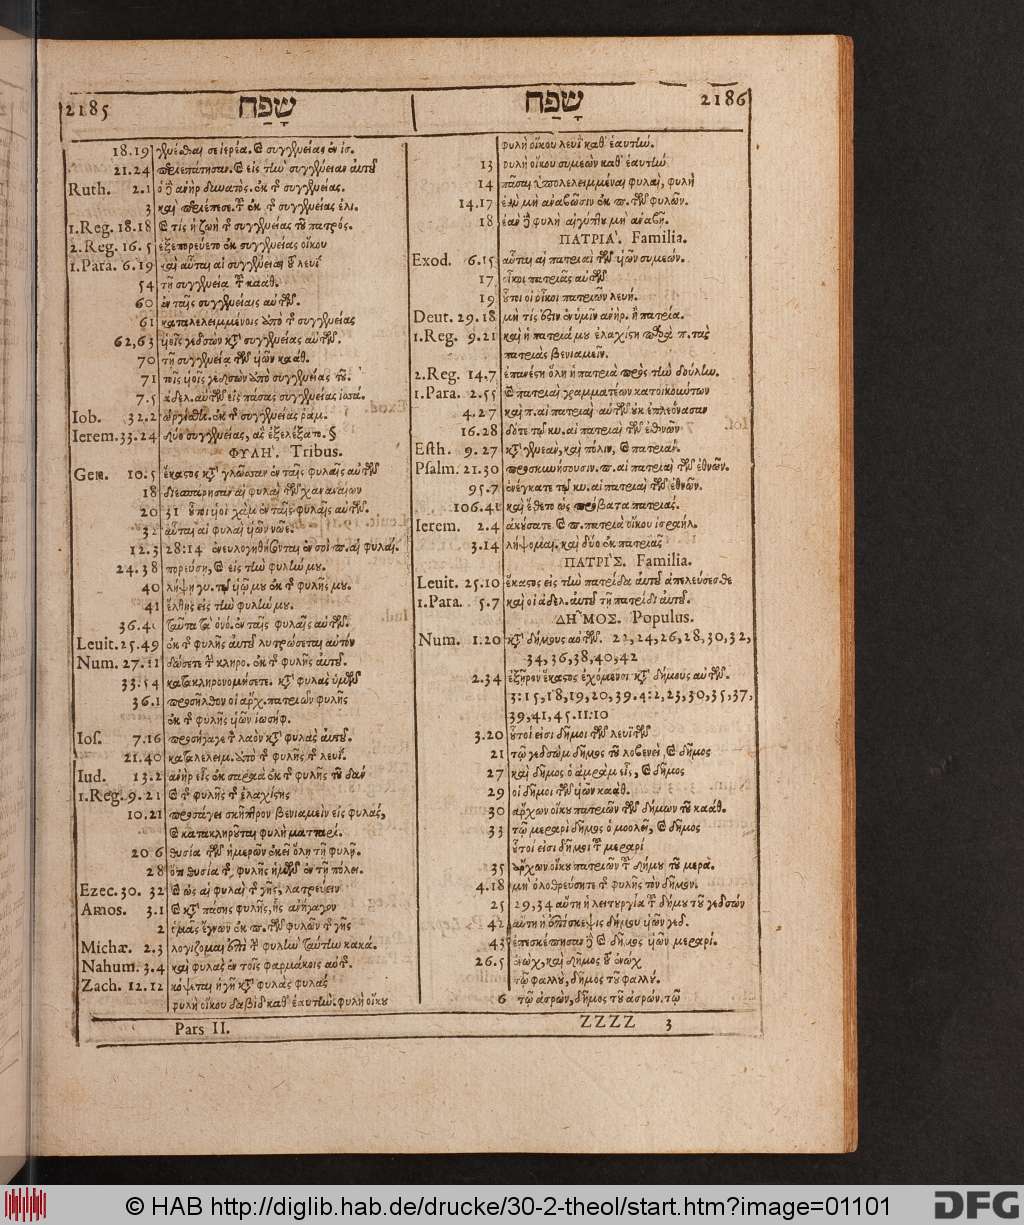 2185 שָׁפַח שָׁפַח 2186
18.19
21.24
Ruth. 2.1 δυνατὸς. συγγενείας.
3 συγγενείας ἐλι.
1.Reg. 18.18 τίς ἡ ζωὴ συγγενείας τοῦ πατρός.
2.Reg. 16.5 ἐξεπορεύετο ἐκ συγγενείας οἴκου
1.Para. 6.19 καὶ αὗται αἱ συγγένειαι λευί
54 τῇ συγγενείᾳ καάθ.
60 ἐν ταῖς συγγενείαις αὐτῶν.
61 καταλελειμμένοις ἀπὸ συγγενείας
62,63 συγγενείας αὐτῶν.
70 τῇ συγγενείᾳ τῶν υἱῶν καάθ.
71 τοῖς υἱοῖς γεδσὼν ἀπὸ συγγενείας
7.5 ἀδελ. αὐτῶν εἰς πάσας συγγενείας
Iob. 32.2 ὠργίσθη. ἐκ συγγενείας ῥάμ.
Ierem. 33.24 δύο συγγενείας, ἃς ἐξελέξατο. §
ΦΥΛΗ'. Tribus.
Gen. 10.5 ἕκαστος γλῶσσαν ἐν ταῖς φυλαῖς αὐτῶν
18 διεσπάρησαν αἱ φυλαὶ τῶν χαναναίων
20 31 ἐν ταῖς φυλαῖς αὐτῶν.
32 αὗται αἱ φυλαὶ υἱῶν νῶε.
12.3 28:14 ἐνευλογηθήσονται ἐν σοὶ π. αἱ φυλαί.
24.38 πορεύσῃ, καὶ εἰς τὴν φυλήν μου.
40 λήψῃ γυ. τῷ υἱῷ μου ἐκ τῆς φυλῆς μου.
41 ἔλθῃς εἰς τὴν φυλήν μου.
36.40 ταῦτα τὰ ὀνό. ἐν ταῖς φυλαῖς αὐτῶν.
Leuit. 25.49 ἐκ τῆς φυλῆς αὐτοῦ λυτρώσεται αὐτόν
Num. 27.11 δώσετε τὴν κληρο. ἐκ τῆς φυλῆς αὐτοῦ.
33.54 κατακληρονομήσετε. φυλὰς ὑμῶν
36.1 προσῆλθον οἱ ἄρχ. πατριῶν φυλῆς
ἐκ τῆς φυλῆς υἱῶν ἰωσήφ.
Ios. 7.16 προσήγαγε τὸν λαὸν κατὰ φυλὰς αὐτοῦ.
21.40 καταλελειμ. ἀπὸ τῆς φυλῆς τοῦ λευί.
Iud. 13.2 ἀνὴρ εἷς ἐκ σαραὰ ἐκ τῆς φυλῆς τοῦ δάν
1.Reg. 9.21 καὶ τῆς φυλῆς τῆς ἐλαχίστης
10.21 προσάγει σκῆπτρον βενιαμεὶν εἰς φυλάς,
καὶ κατακληροῦται φυλὴ ματταρί.
20 6 θυσία τῶν ἡμερῶν ἐκεῖ ὅλῃ τῇ φυλῇ.
28 θυσία τῆς φυλῆς ἡμῶν ἐν τῇ πόλει.
Ezec. 30. 32 καὶ ὡς αἱ φυλαὶ τῆς γῆς, λατρεύειν
Amos. 3.1 καὶ κατὰ πάσης φυλῆς, ἧς ἀνήγαγον
2 ὑμᾶς ἔγνων ἐκ π. τῶν φυλῶν τῆς γῆς
Michæ. 2.3 λογίζομαι ἐπὶ τὴν φυλὴν ταύτην κακά.
Nahum. 3.4 καὶ φυλὰς ἐν τοῖς φαρμάκοις αὐτῆς.
Zach. 12.12 κόψεται ἡ γῆ κατὰ φυλὰς φυλάς
φυλὴ οἴκου δαβὶδ καθ' ἑαυτήν. φυλὴ οἴκου
Pars II.
φυλὴ οἴκου λευῒ καθ' ἑαυτήν.
13 φυλὴ οἴκου συμεὼν καθ' ἑαυτήν.
14 πᾶσαι ὑπολελειμμέναι φυλαὶ, φυλὴ
14.17 μὴ ἀναβῶσιν ἐκ π. τῶν φυλῶν.
18 ἐὰν δὲ φυλὴ αἰγύπτου μὴ ἀναβῇ.
ΠΑΤΡΙΑ'. Familia.
Exod. 6.15 αὗται αἱ πατριαὶ τῶν υἱῶν συμεών.
17 οἶκοι πατριᾶς αὐτῶν
19 οὗτοι οἱ οἶκοι πατριῶν λευή.
Deut. 29.18 μή τίς ἐστιν ἐν ὑμῖν ἀνήρ. ἢ πατρία.
1.Reg. 9.21 καὶ ἡ πατριά μου ἐλαχίστη παρὰ π. τὰς
πατριὰς βενιαμεῖν.
2.Reg. 14.7 ἐπανέστη ὅλη ἡ πατριὰ πρὸς τὴν δούλην.
1.Para. 2.55 καὶ πατριαὶ γραμματέων κατοικούντων
4.27 καὶ π. αἱ πατριαὶ αὐτῶν οὐκ ἐπλεόνασαν
16.28 δότε τῷ κυ. αἱ πατριαὶ τῶν ἐθνῶν
Esth. 9.27 κατὰ γενεὰν, καὶ πόλιν, καὶ πατριάν.
Psalm. 21.30 προσκυνήσουσιν. π. αἱ πατριαὶ τῶν ἐθνῶν.
95.7 ἐνέγκατε τῷ κυ. αἱ πατριαὶ τῶν ἐθνῶν.
106.41 καὶ ἔθετο ὡς πρόβατα πατριάς.
Ierem. 2.4 ἀκούσατε καὶ π. πατριὰ οἴκου ἰσραήλ.
3.14 λήψομαι. καὶ δύο ἐκ πατριᾶς
ΠΑΤΡΙ'Σ. Familia.
Leuit. 25.10 ἕκαστος εἰς τὴν πατρίδα αὐτοῦ ἀπελεύσεσθε
1.Para. 5.7 καὶ οἱ ἀδελ. αὐτοῦ τῇ πατρίδι αὐτοῦ.
ΔΗ~ΜΟΣ. Populus.
Num. 1.20 κατὰ δήμους αὐτῶν. 22,24,26,28,30,32,
34,36,38,40,42
2.34 ἐξῆρον ἕκαστος ἐχόμενοι κατὰ δήμους αὐτῶν.
3:15,18,19,20,39.4:2,23,30,35,37,
39,41,45.11:10
3.20 οὗτοί εἰσι δῆμοι τῶν λευϊτῶν
21 τῷ γεδσὼμ δῆμος τοῦ λοβενεί, καὶ δῆμος
27 καὶ δῆμος ὁ ἀμρὰμ εἷς, καὶ δῆμος
29 οἱ δῆμοι τῶν υἱῶν καάθ.
30 ἄρχων οἴκου πατριῶν τῶν δήμων τοῦ καάθ.
33 τῷ μεραρὶ δῆμος ὁ μοολεῖ, καὶ δῆμος
οὗτοί εἰσι δῆμοι τοῦ μεραρί
35 ἄρχων οἴκου πατριῶν τοῦ δήμου τοῦ μερα.
4.18 μὴ ὀλοθρεύσητε τῆς φυλῆς τὸν δῆμον.
25 29,34 αὕτη ἡ λειτουργία τοῦ δήμου τοῦ γεδσών
42 αὕτη ἡ ἐπίσκεψις δήμου υἱῶν γεδ.
43 ἐπεσκέπησαν δὲ καὶ δῆμος υἱῶν μεραρί.
26.5 ἐνὼχ, καὶ δῆμος τοῦ ἐνώχ
τῷ φαλλὺ, δῆμος τοῦ φαλλύ.
6 τῷ ἀσρὼν, δῆμος τοῦ ἀσρών. τῷ
ZZZZ 3
© HAB http://diglib.hab.de/drucke/30-2-theol/start.htm?image=01101
DFG